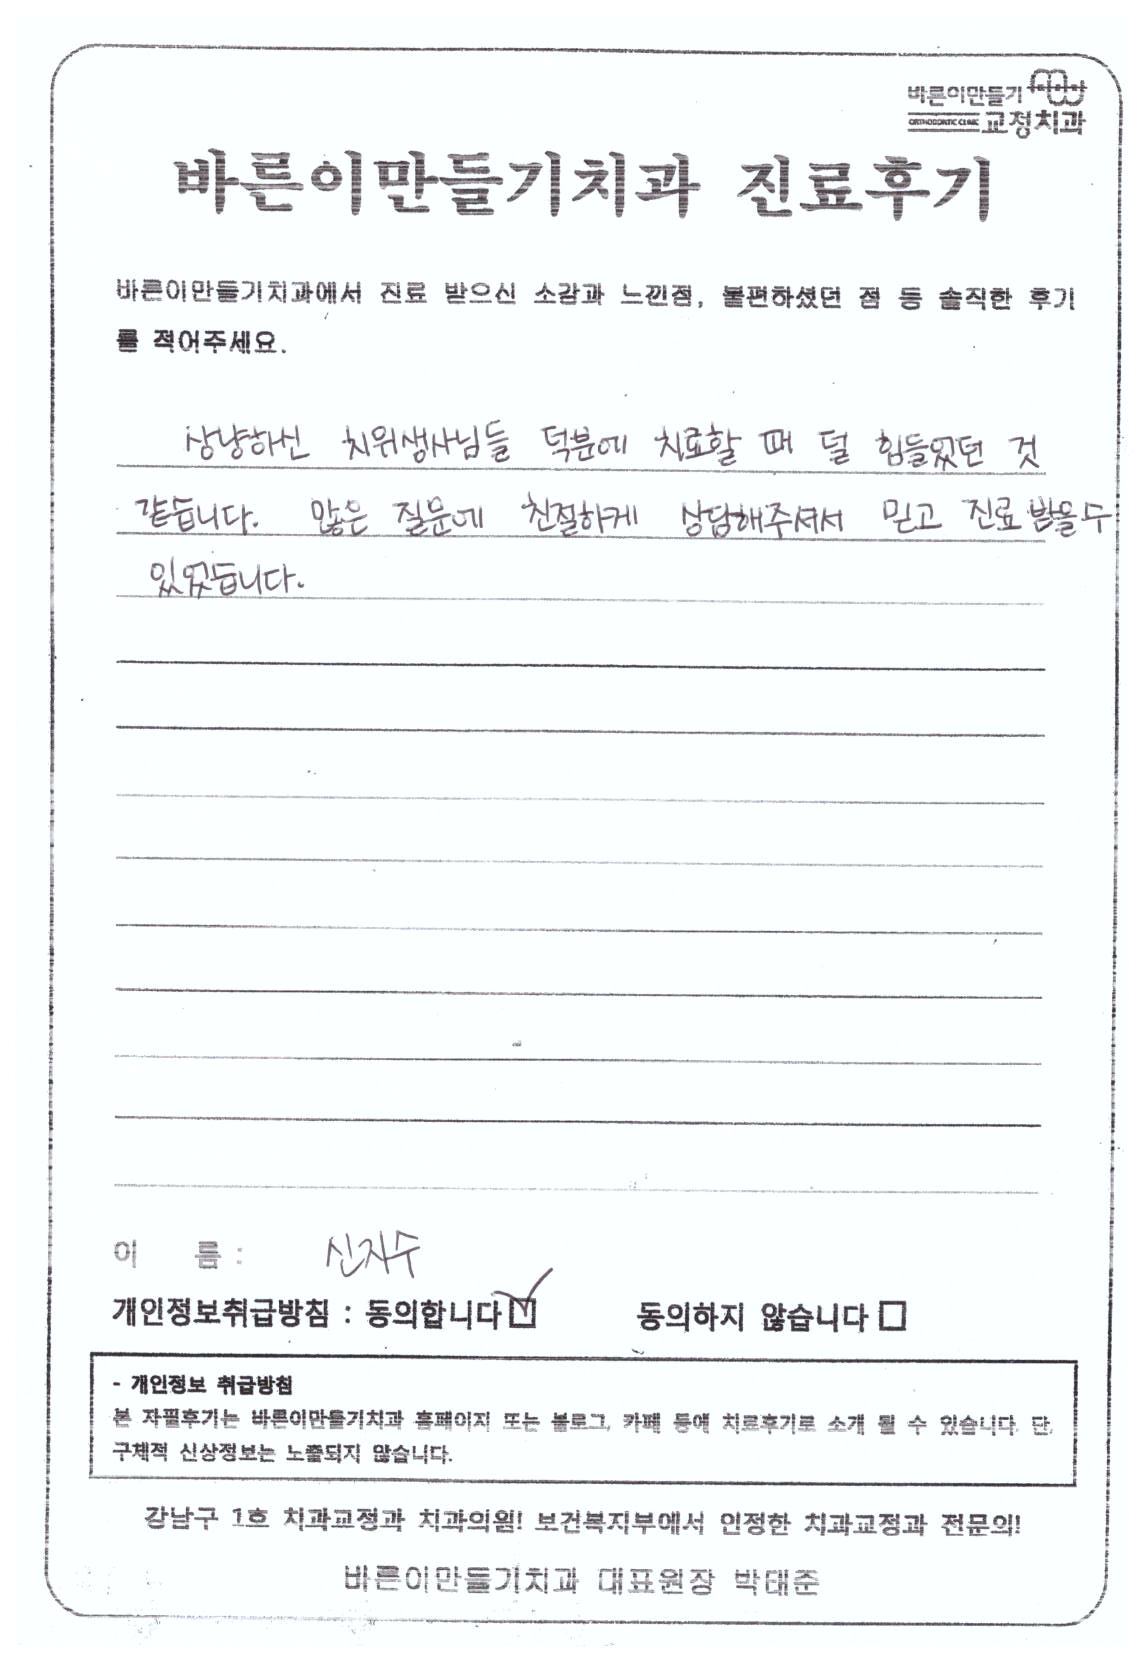 바른이만들기
ORTHODONTIC CLINIC 교정치과
바른이만들기치과 진료후기
바른이만들기치과에서 진료 받으신 소감과 느낀점, 불편하셨던 점 등 솔직한 후기
를 적어주세요.
상냥하신 치위생사님들 덕분에 치료할 때 덜 힘들었던 것
같습니다. 많은 질문에 친절하게 상담해주셔서 믿고 진료 받을 수
있었습니다.
이 름 : 신지수
개인정보취급방침 : 동의합니다 동의하지 않습니다
- 개인정보 취급방침
본 자필후기는 바른이만들기치과 홈페이지 또는 블로그, 카페 등에 치료후기로 소개 될 수 있습니다. 단,
구체적 신상정보는 노출되지 않습니다.
강남구 1호 치과교정과 치과의원! 보건복지부에서 인정한 치과교정과 전문의!
바른이만들기치과 대표원장 박대준